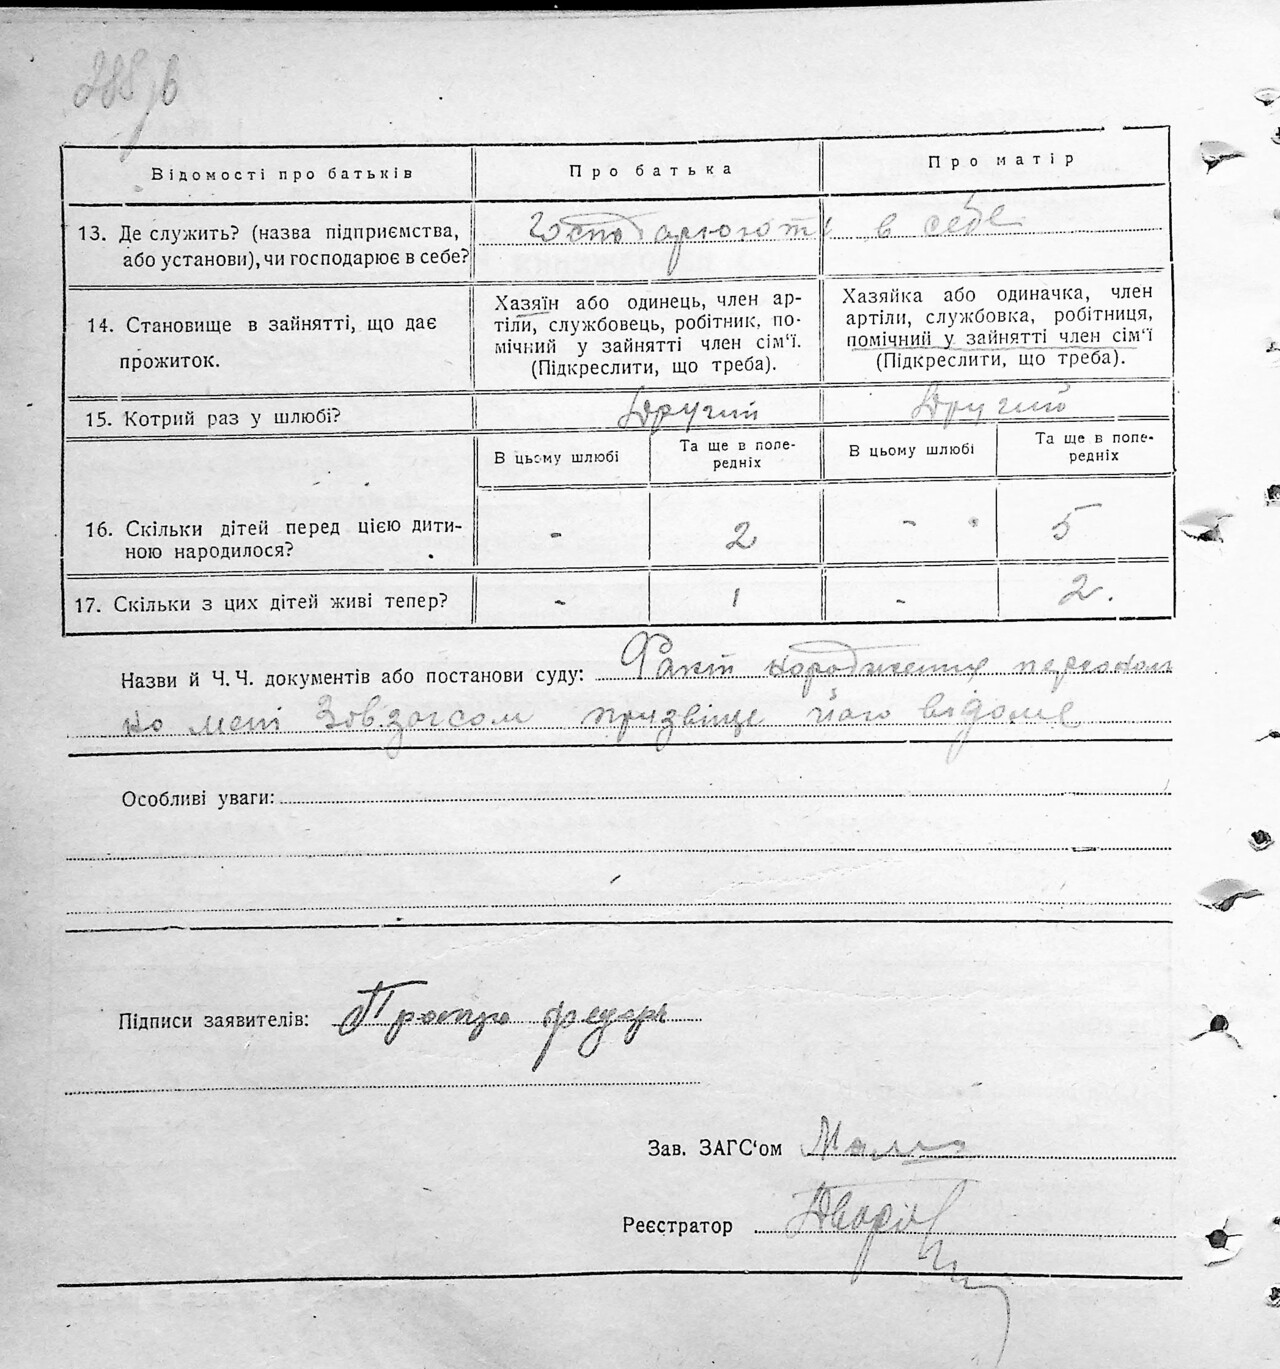 285 зв
Відомості про батьків
Про батька
Про матір
13. Де служить? (назва підприємства,
або установи), чи господарює в себе?
Господарюють в себе
14. Становище в зайнятті, що дає
прожиток.
Хазяїн або одинець, член ар-
тіли, службовець, робітник, по-
мічний у зайнятті член сім'ї.
(Підкреслити, що треба).
Хазяйка або одиначка, член
артіли, службовка, робітниця,
помічний у зайнятті член сім'ї
(Підкреслити, що треба).
15. Котрий раз у шлюбі?
Другий
Другий
В цьому шлюбі
Та ще в попе-
редніх
В цьому шлюбі
Та ще в попе-
редніх
16. Скільки дітей перед цією дити-
ною народилося?
-
2
-
5
17. Скільки з цих дітей живі тепер?
-
1
-
2.
Назви й Ч. Ч. документів або постанови суду: Факт народження
но мені Зав.загсом прізвіще його відоме
Особливі уваги:
Підписи заявителів:
Зав. ЗАГС'ом
Реєстратор